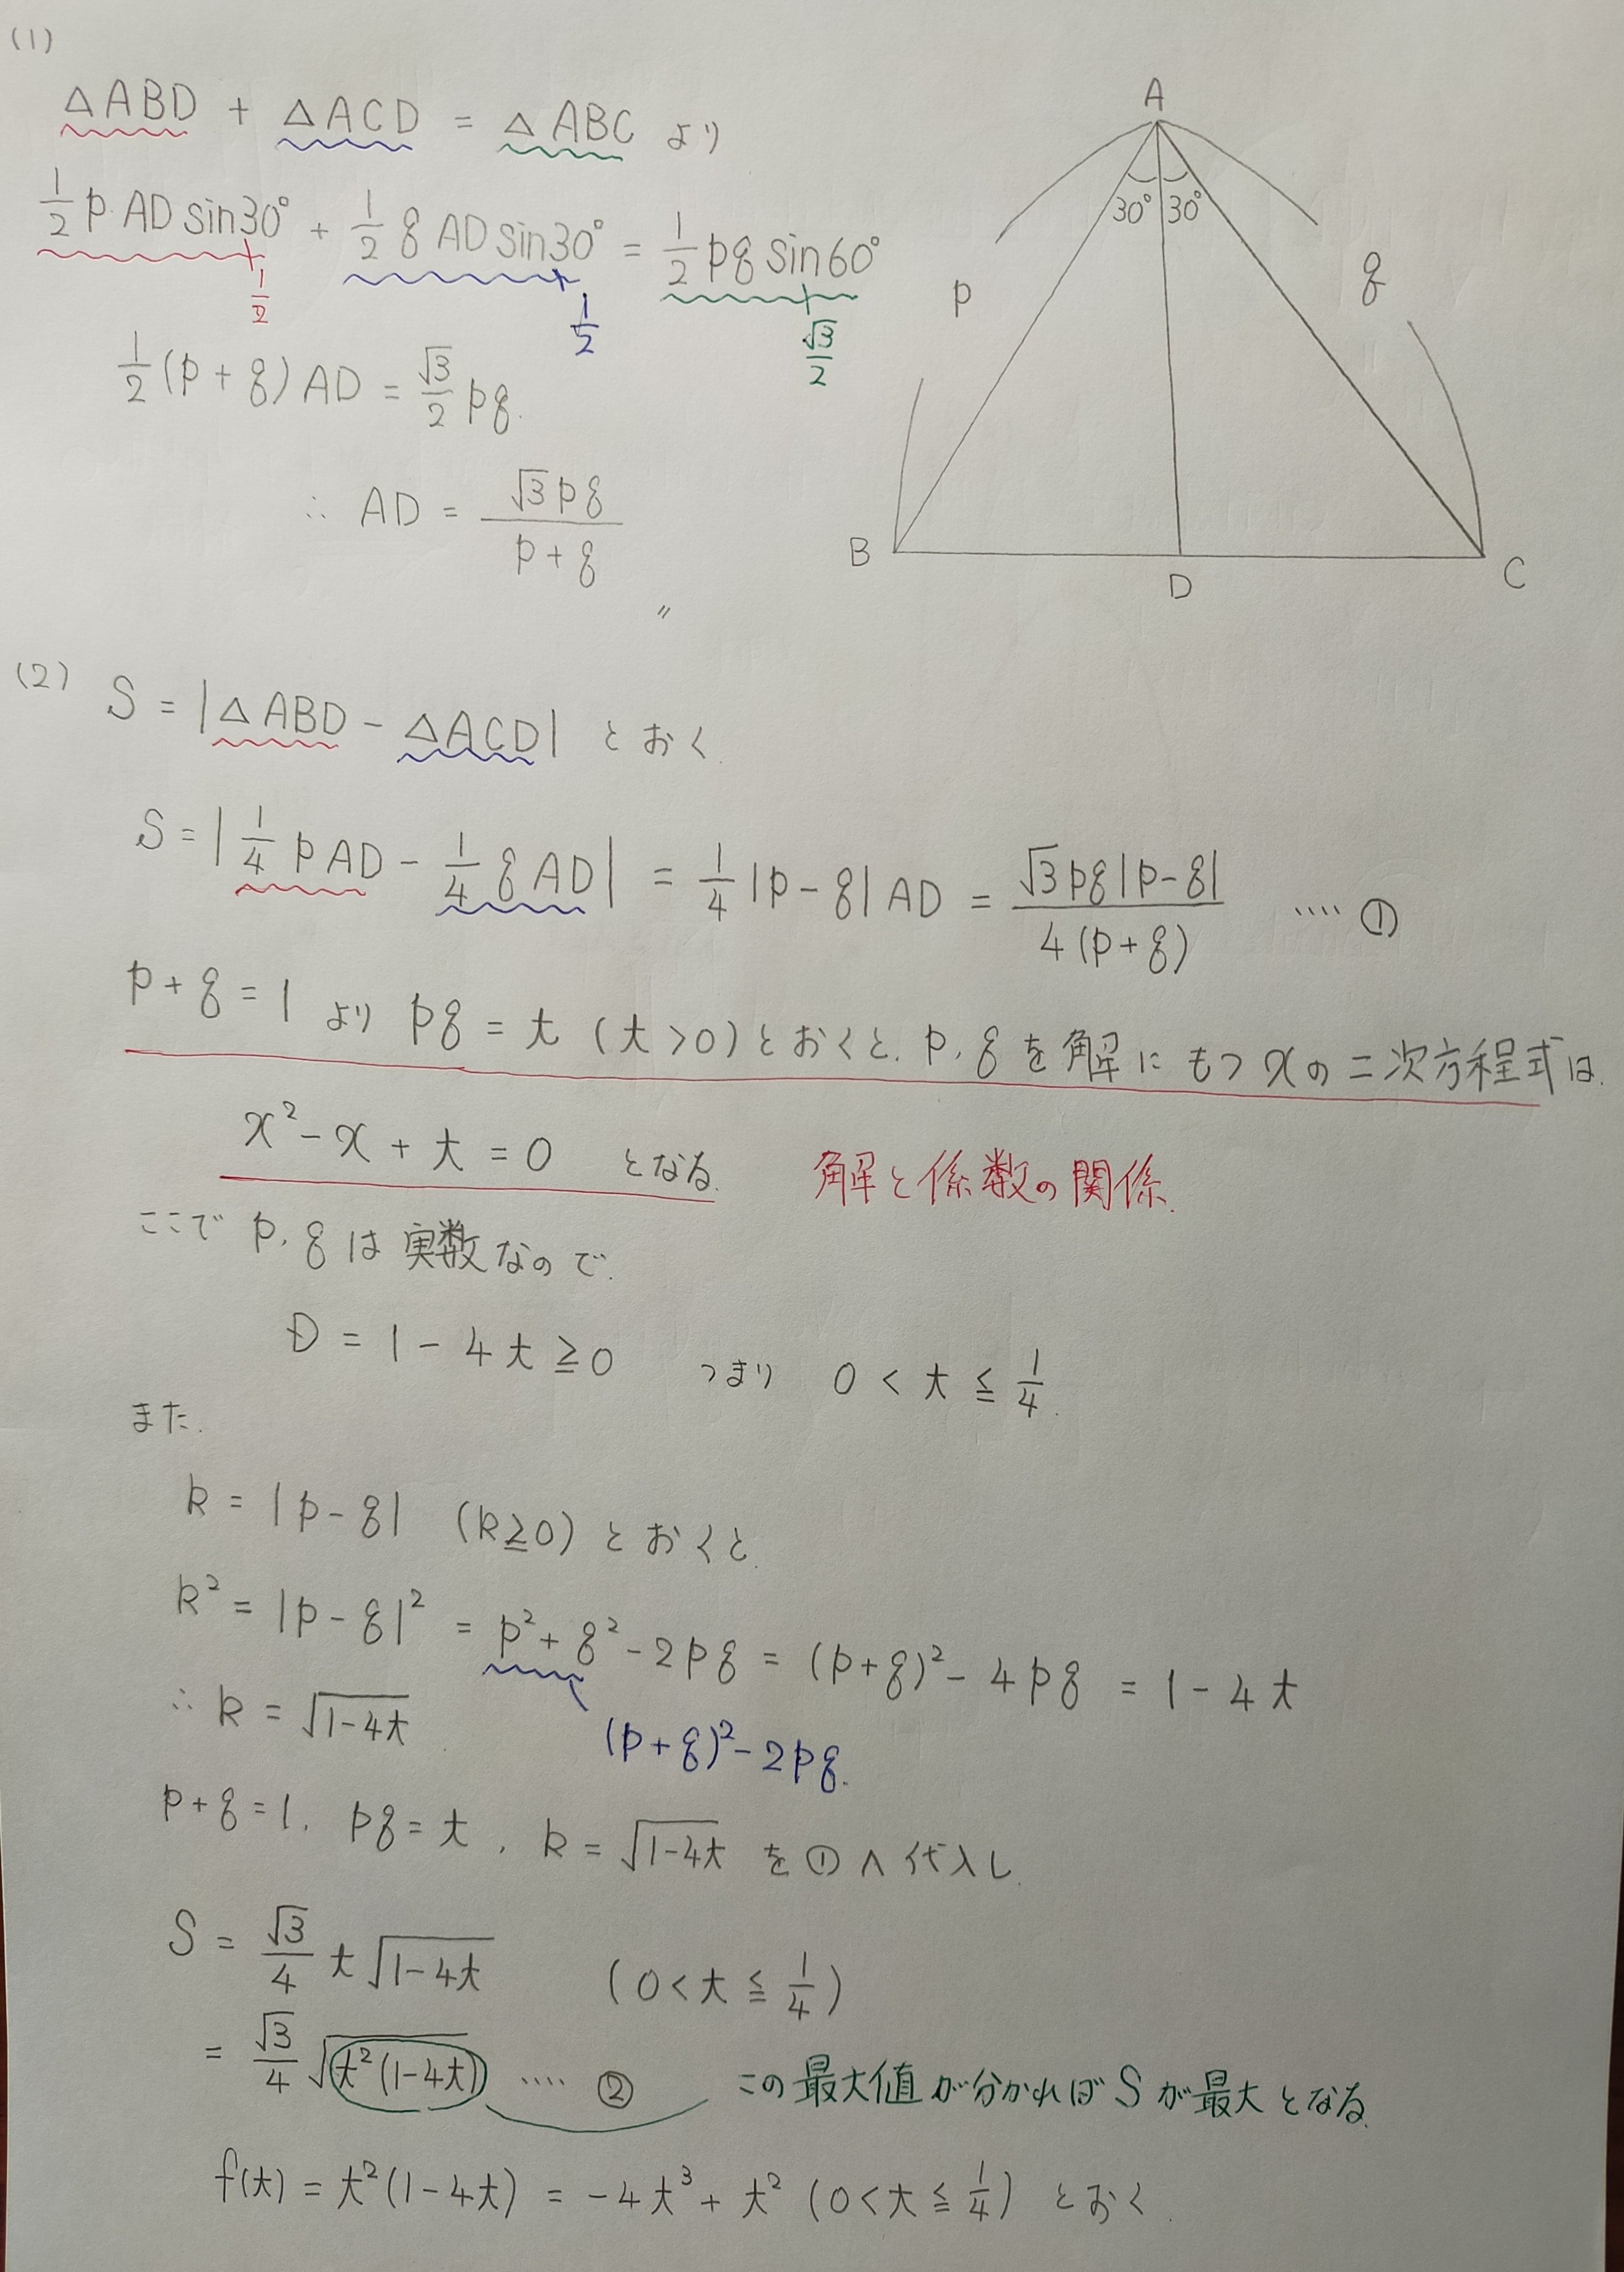 (1)
△ABD + △ACD = △ABC より
1/2 p AD sin30° + 1/2 q AD sin30° = 1/2 pq sin60°
1/2 1/2 √3/2
1/2 (p + q) AD = √3/2 pq.
∴ AD = √3pq/(p + q)
〃
A
30° 30°
p q
B D C
(2) S = |△ABD - △ACD| とおく.
S = |1/4 p AD - 1/4 q AD| = 1/4 |p - q| AD = √3pq|p - q|/4(p + q) ‥‥ ①
p + q = 1 より pq = t (t > 0) とおくと. p, q を解にもつxの二次方程式は.
x² - x + t = 0 となる. 解と係数の関係.
ここで p, q は実数なので.
D = 1 - 4t ≧ 0 つまり 0 < t ≦ 1/4.
また.
k = |p - q| (k ≧ 0) とおくと.
k² = |p - q|² = p² + q² - 2pq = (p + q)² - 4pq = 1 - 4t
∴ k = √(1-4t)
(p + q)² - 2pq.
p + q = 1, pq = t, k = √(1-4t) を①へ代入し.
S = √3/4 t√(1-4t) (0 < t ≦ 1/4)
= √3/4 √(t²(1-4t)) ‥‥ ② この最大値が分かればSが最大となる.
f(t) = t²(1-4t) = -4t³ + t² (0 < t ≦ 1/4) とおく.